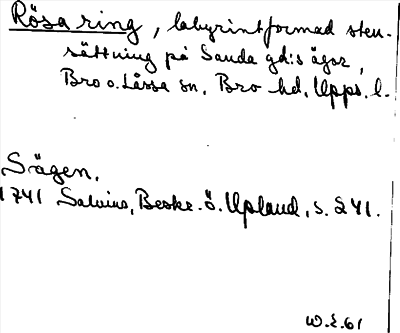 Rösa ring, labyrintformad sten-
sättning på Sanda gd:s ägor,
Bro o. Låssa sn, Bro hd, Upps. l.
Sägen.
1741 Salvius, Beskr. ö. Upland, s. 241.
W.E. 61